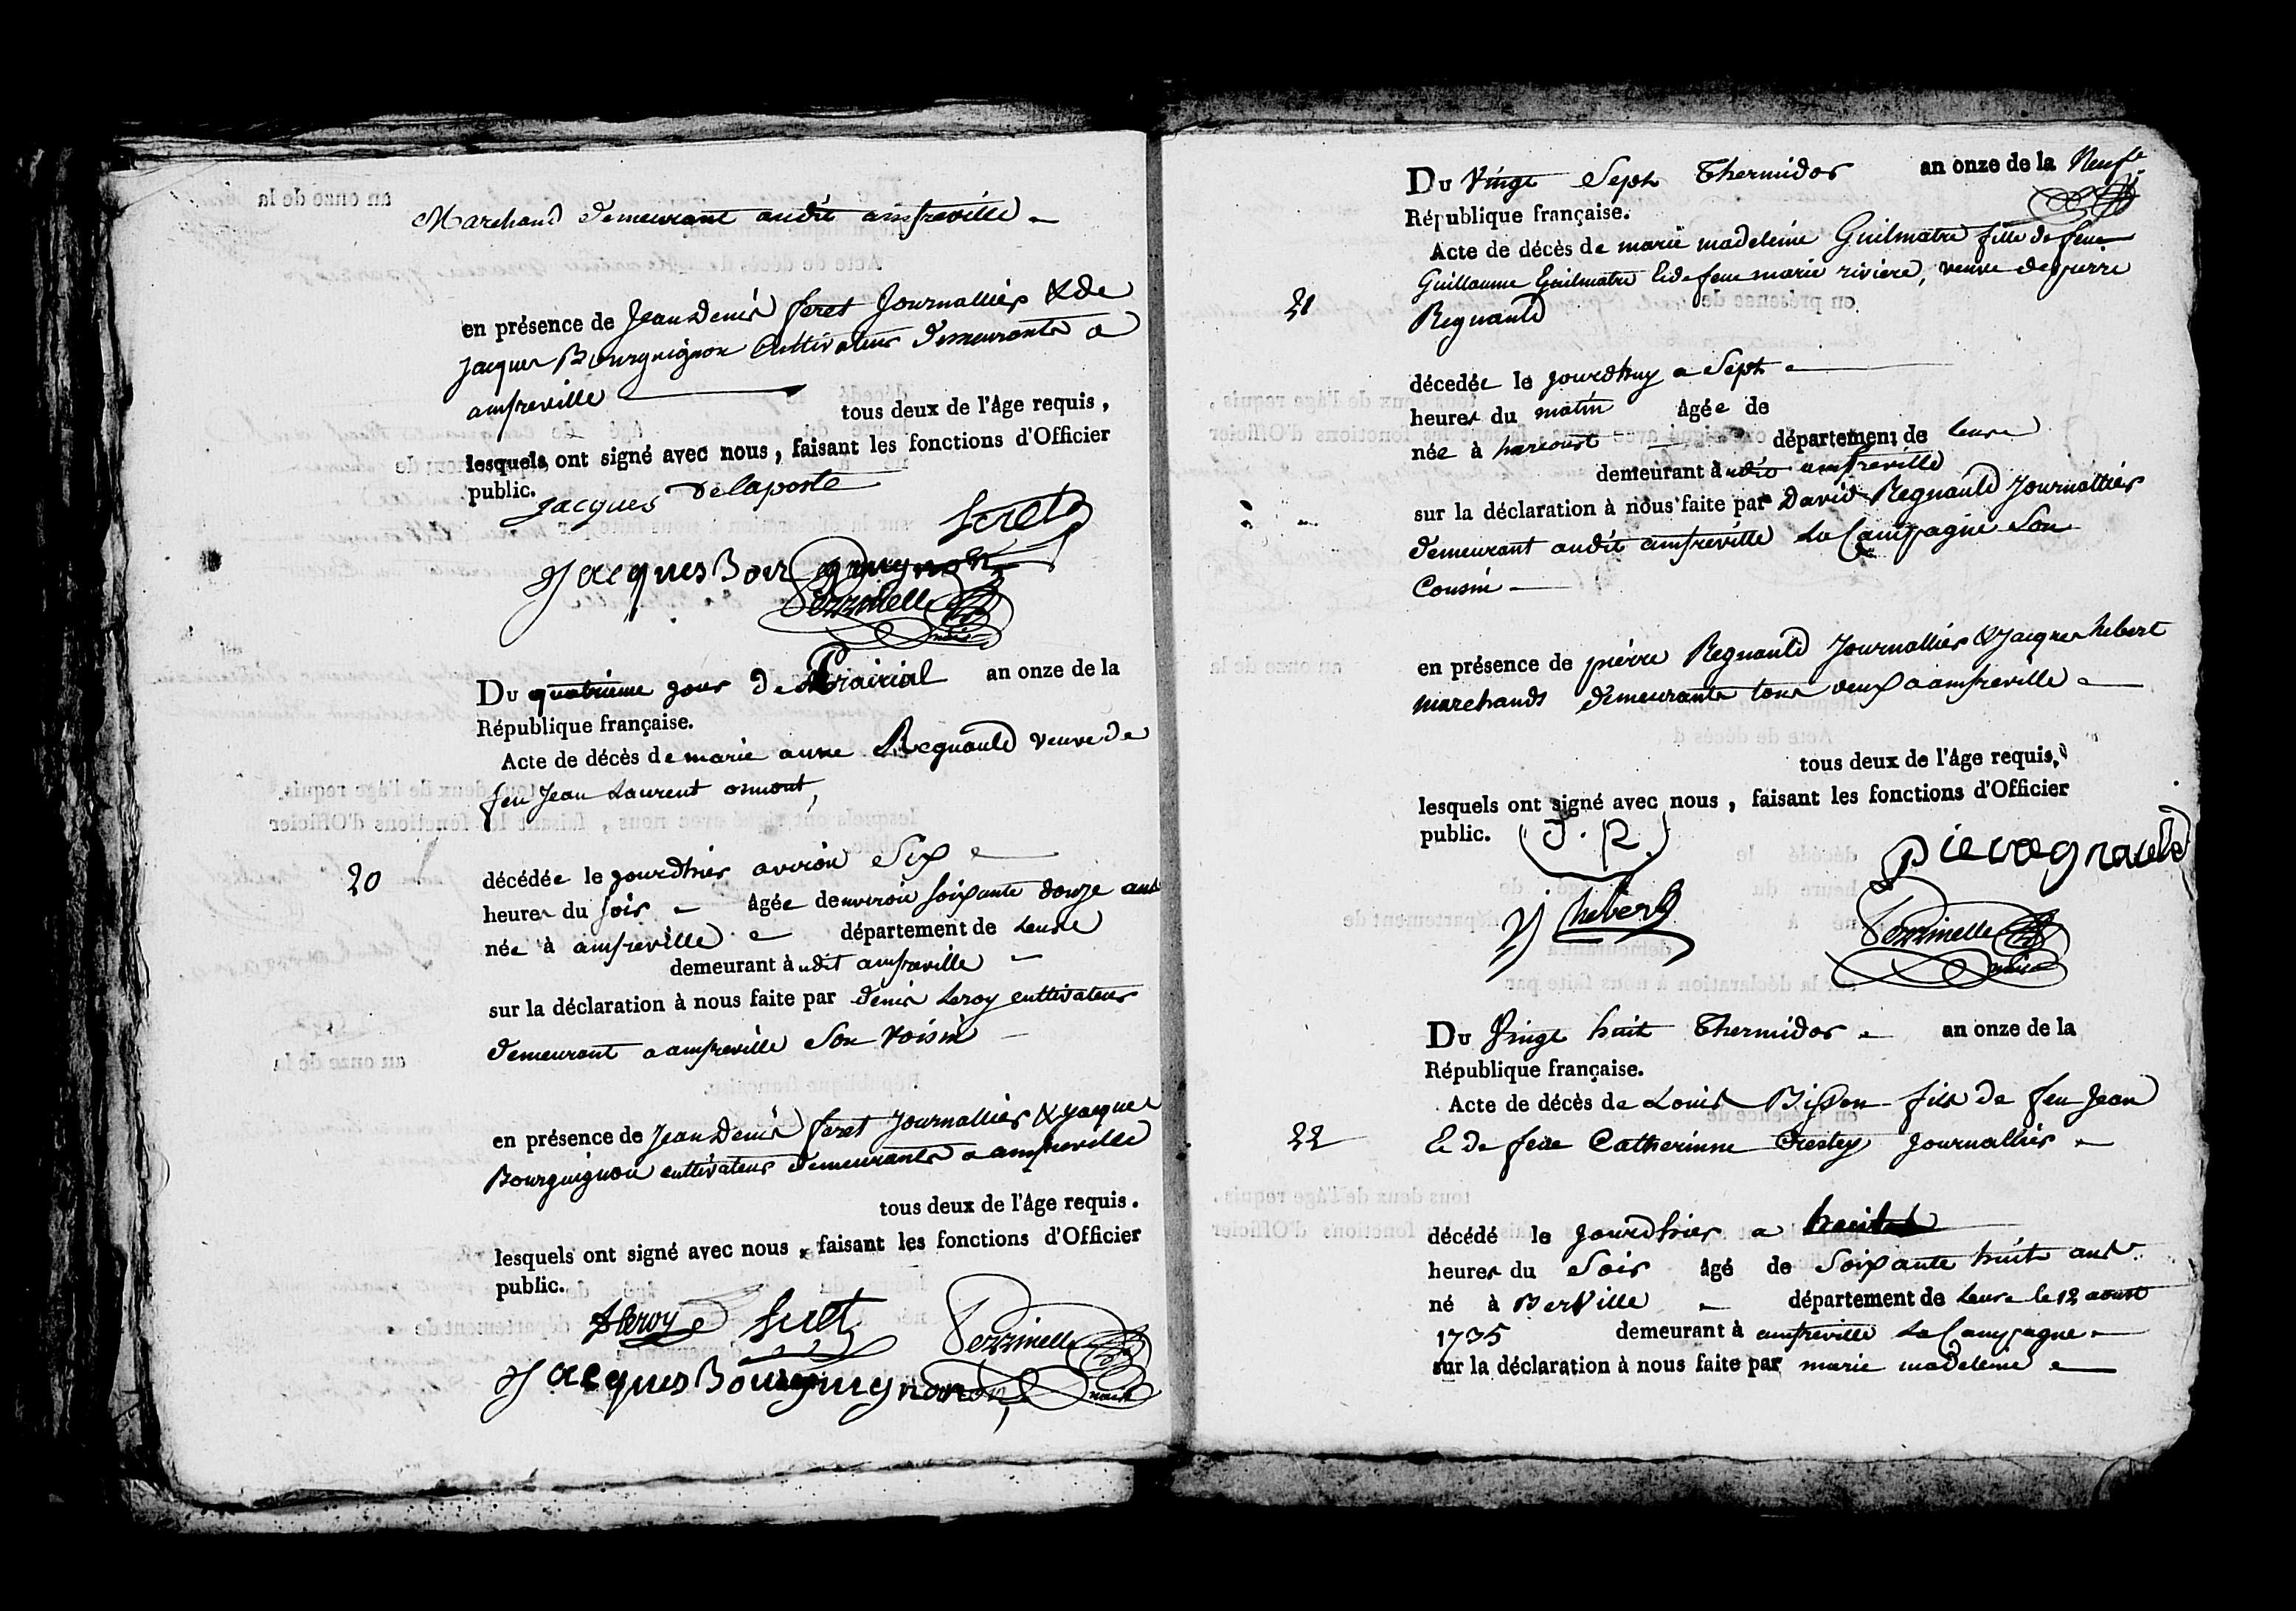 Marchand demeurant audit amfreville
en présence de Jean Denis feret Journallier & de
Jacques Bourguignon Cultivateur demeurants a
amfreville
tous deux de l'âge requis,
lesquels ont signé avec nous, faisant les fonctions d'Officier
public.
Jacques Delaporte
feret
Jacques Bourguignon
20
Du quatrieme jour de Prairial an onze de la
République française.
Acte de décès de marie anne Regnauld veuve de
feu Jean Laurent osmont,
décédée le jourdhier environ Six
heures du soir âgée denviron soixante douze ans
née à amfreville département de Leure
demeurant audit amfreville
sur la déclaration à nous faite par denis Leroy cultivateur
demeurant a amfreville Son voisin
en présence de Jean Denis feret Journallier & jacques
Bourguignon cultivateur demeurants a amfreville
tous deux de l'âge requis.
lesquels ont signé avec nous, faisant les fonctions d'Officier
public.
D Leroy feret
Jacques Bourguignon
21
Du Vingt Sept Thermidor an onze de la
République française.
Acte de décès de marie madeleine Guilmatre fille de feu
Guillaume Guilmatre & de feue marie riviere, veuve de pierre
Regnauld
décedée le jourdhuy a Sept
heures du matin âgée de
née à harcourt département de Leure
demeurant audit amfreville
sur la déclaration à nous faite par David Regnauld Journallier
demeurant audit amfreville La Campagne Son
Cousin
en présence de pierre Regnauld Journallier & Jacques hebert
marchands demeurants tous deux a amfreville
tous deux de l'âge requis,
lesquels ont signé avec nous, faisant les fonctions d'Officier
public.
J. R.
j hebert
22
Du Vingt huit Thermidor an onze de la
République française.
Acte de décès de Louis Bisson fils de feu Jean
& de feue Catherinne Crestey Journallier
décédé le jourdhier a
heures du Soir âgé de Soixante huit ans
né à Berville département de Leure le 12 aoust
1735 demeurant à amfreville La Campagne
sur la déclaration à nous faite par marie madeleine